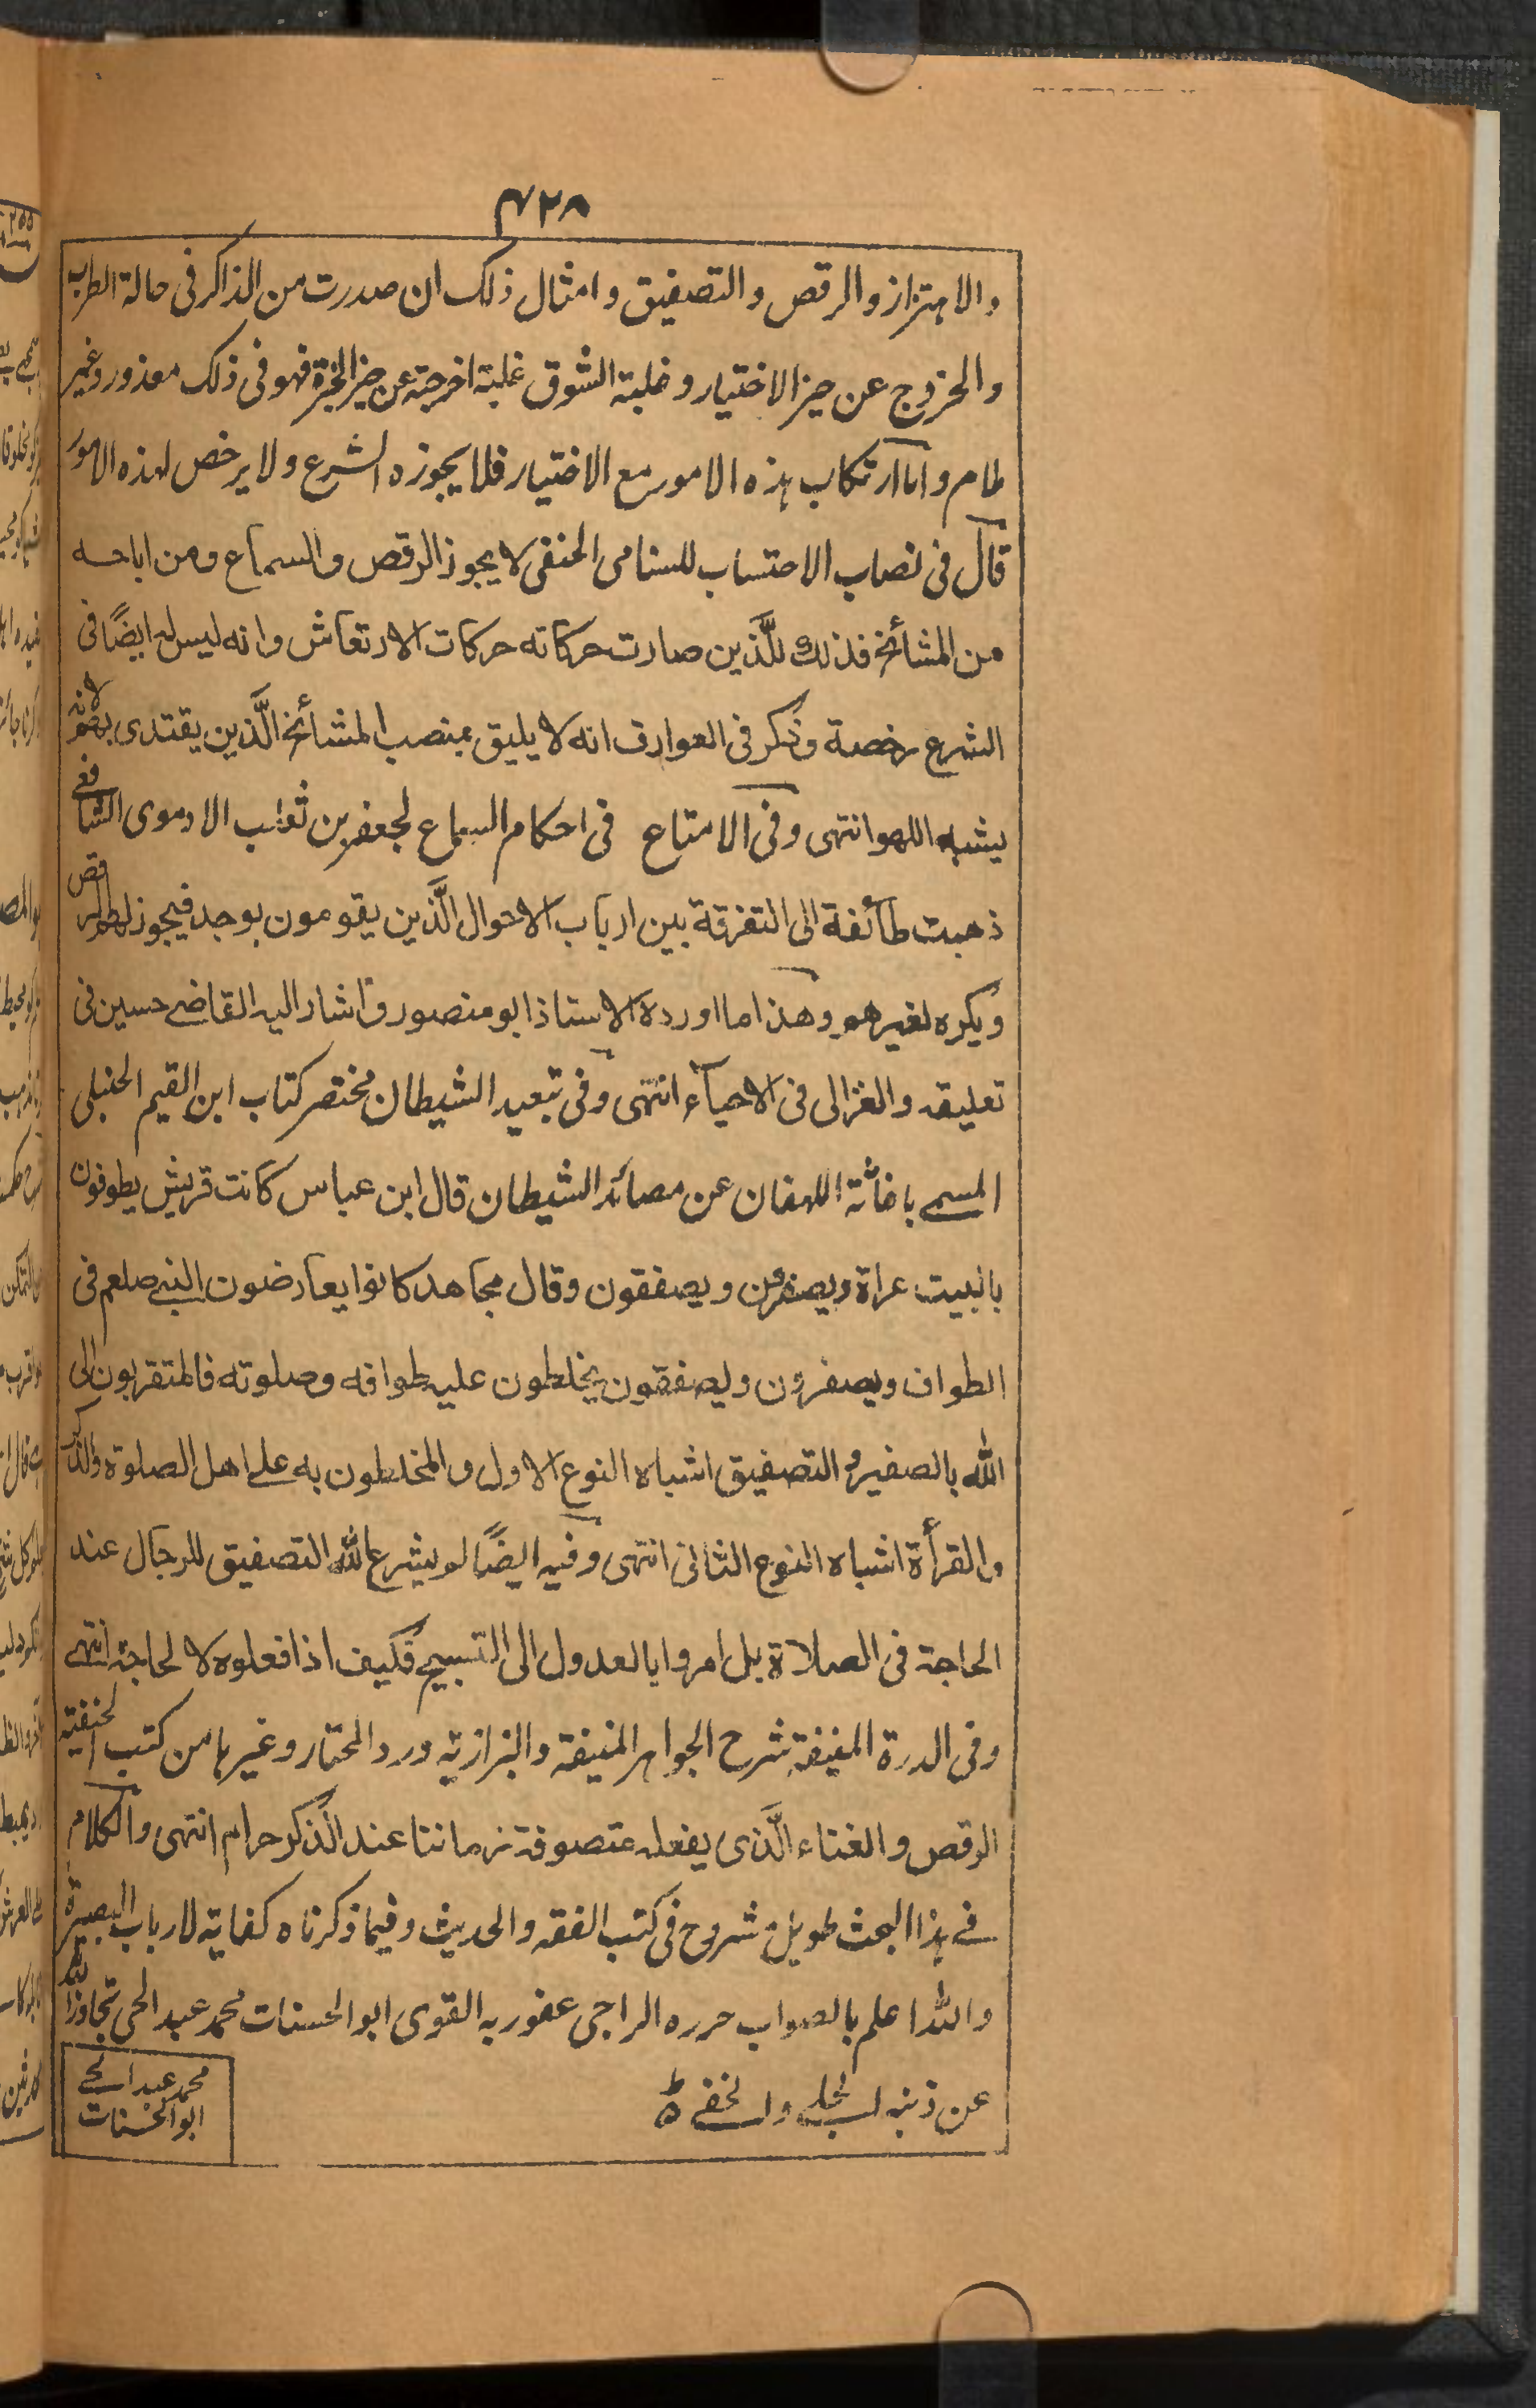 ۴۲۸
والاهتزاز والرقص والتصفيق وامثال ذلك ان صدرت من الذاكر فى حالة الطرب
والخروج عن حيز الاختيار وغلبة الشوق غلبة اخرجته عن حيز الخبرة فهو فى ذلك معذور وغير
ملام واما ارتكاب هذه الامور مع الاختيار فلا يجوزه الشرع ولا يرخص لهذه الامور
قال فى نصاب الاحتساب للسنامى الحنفى لا يجوز الرقص والسماع ومن اباحه
من المشائخ فذلك للَّذين صارت حركاته حركات الارتعاش وانه ليس له ايضًا فى
الشرع رخصة وذكر فى العوارف انه لا يليق بمنصب المشائخ الَّذين يقتدى بهم لانه
يشبه اللهو انتهى وفى الامتاع فى احكام السماع لجعفر بن ثعلب الادموى الشافعى
ذهبت طائفة الى التفرقة بين ارباب الاحوال الَّذين يقومون بوجد فيجوز لهم الرقص
ويكره لغيرهم وهذا ما اورده الاستاذ ابو منصور واشار اليه القاضے حسين فى
تعليقه والغزالى فى الاحياء انتهى وفى تبعيد الشيطان مختصر كتاب ابن القيم الحنبلى
المسمے باغاثة اللهفان عن مصائد الشيطان قال ابن عباس كانت قريش يطوفون
بالبيت عراة ويصفرون ويصفقون وقال مجاهد كانوا يعارضون النبے صلعم فى
الطواف ويصفرون ويصفقون يخلطون عليه طوافه وصلوته فالمتقربون الى
الله بالصفير والتصفيق اشباه النوع الاول والمخلطون به علے اهل الصلوة والذكر
والقرأة اشباه النوع الثانى انتهى وفيه ايضًا لم يشرع الله التصفيق للرجال عند
الحاجة فى الصلاة بل امروا بالعدول الى التسبيح فكيف اذا فعلوه لا لحاجة انتهے
وفى الدرة المنيفة شرح الجواهر المنيفة والبزازية ورد المحتار وغيرها من كتب الحنفية
الرقص والغناء الَّذى يفعله متصوفة زماننا عند الذكر حرام انتهى والكلام
فے هذا البحث طويل مشروح فى كتب الفقه والحديث وفيما ذكرناه كفاية لارباب البصيرة
والله اعلم بالصواب حرره الراجى عفو ربه القوى ابو الحسنات محمد عبد الحى تجاوز الله
عن ذنبه الجلے والخفے
محمد عبد الحے
ابو الحسنات